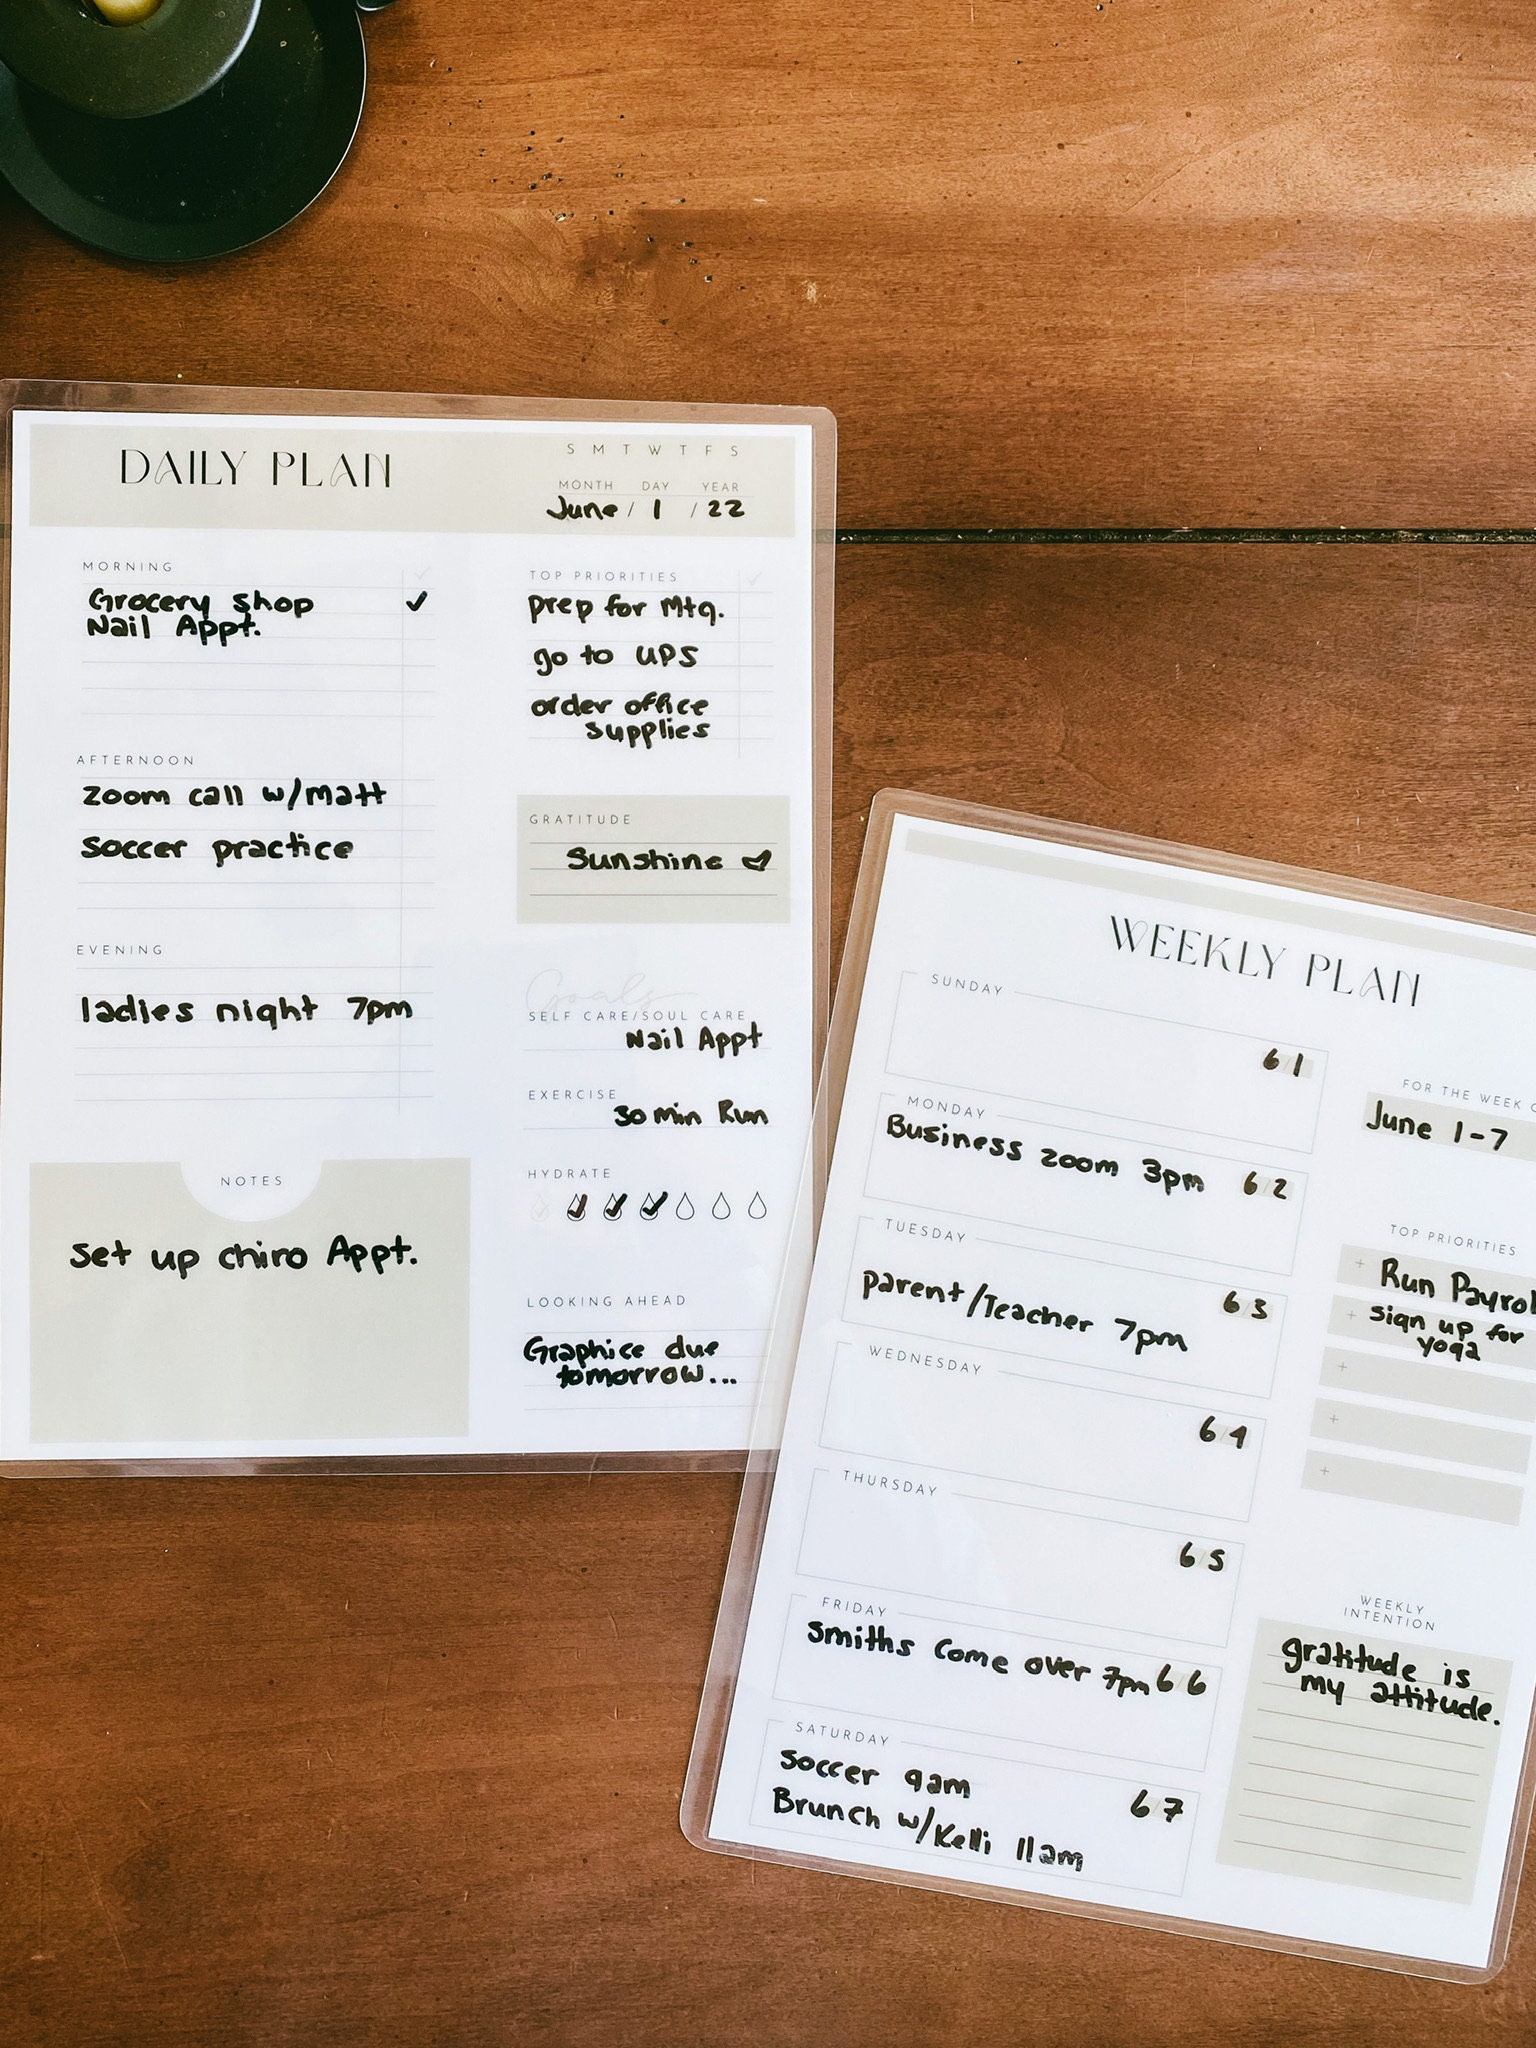 DAILY PLAN
S M T W T F S
MONTH DAY YEAR
June / 1 / 22
MORNING
Grocery shop
Nail Appt.
AFTERNOON
zoom call w/matt
soccer practice
EVENING
ladies night 7pm
NOTES
set up chiro Appt.
TOP PRIORITIES
prep for Mtg.
go to UPS
order office
supplies
GRATITUDE
Sunshine
Goals
SELF CARE/SOUL CARE
Nail Appt
EXERCISE
30 min Run
HYDRATE
LOOKING AHEAD
Graphics due
tomorrow...
WEEKLY PLAN
SUNDAY
6/1
MONDAY
Business zoom 3pm 6/2
TUESDAY
6/3
parent/Teacher 7pm
WEDNESDAY
6/4
THURSDAY
6/5
FRIDAY
smiths come over 7pm 6/6
SATURDAY
soccer 9am
6/7
Brunch w/Kelli 11am
FOR THE WEEK O
June 1-7
TOP PRIORITIES
+ Run Payrol
+ sign up for
yoga
+
+
+
WEEKLY
INTENTION
gratitude is
my attitude.